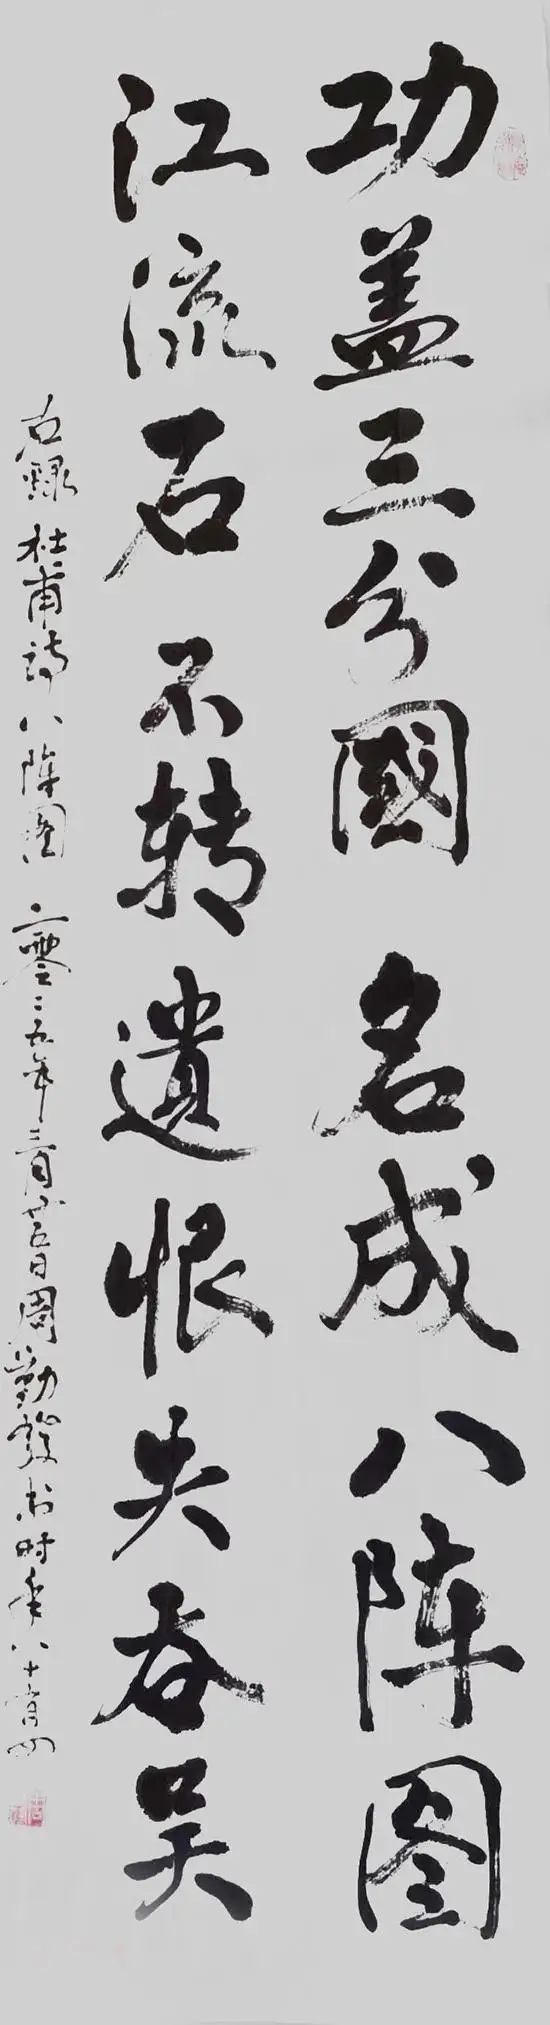 功盖三分國名成八阵图
江流石不转遗恨失吞吴
右録杜甫詩八阵图二零二五年三月廿六日周勤發书时年八十有四